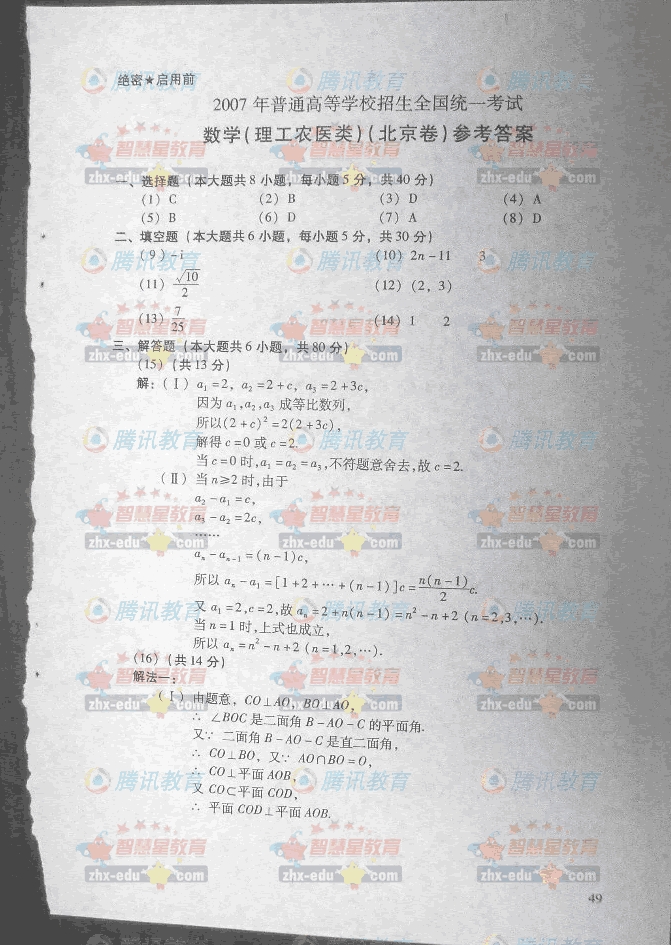 绝密★启用前
2007 年普通高等学校招生全国统一考试
数学(理工农医类)(北京卷)参考答案
一、选择题(本大题共 8 小题，每小题 5 分，共 40 分)
(1) C (2) B (3) D (4) A
(5) B (6) D (7) A (8) D
二、填空题(本大题共 6 小题，每小题 5 分，共 30 分)
(9) -i (10) 2n-11 3
(11) √10/2 (12) (2, 3)
(13) 7/25 (14) 1 2
三、解答题(本大题共 6 小题，共 80 分)
(15) (共 13 分)
解：(Ⅰ) a₁=2, a₂=2+c, a₃=2+3c,
因为 a₁,a₂,a₃ 成等比数列,
所以(2+c)²=2(2+3c),
解得 c=0 或 c=2.
当 c=0 时,a₁=a₂=a₃,不符题意舍去,故 c=2.
(Ⅱ) 当 n≥2 时,由于
a₂-a₁=c,
a₃-a₂=2c,
……
aₙ-aₙ₋₁=(n-1)c,
所以 aₙ-a₁=[1+2+…+(n-1)]c=n(n-1)/2 c.
又 a₁=2,c=2,故 aₙ=2+n(n-1)=n²-n+2 (n=2,3,…).
当 n=1 时,上式也成立,
所以 aₙ=n²-n+2 (n=1,2,…).
(16) (共 14 分)
解法一：
(Ⅰ) 由题意，CO⊥AO，BO⊥AO，
∴ ∠BOC 是二面角 B-AO-C 的平面角.
又∵ 二面角 B-AO-C 是直二面角，
∴ CO⊥BO，又∵ AO∩BO=O，
∴ CO⊥平面 AOB，
又 CO⊂平面 COD，
∴ 平面 COD⊥平面 AOB.
49
腾讯教育
智慧星教育
zhx-edu com